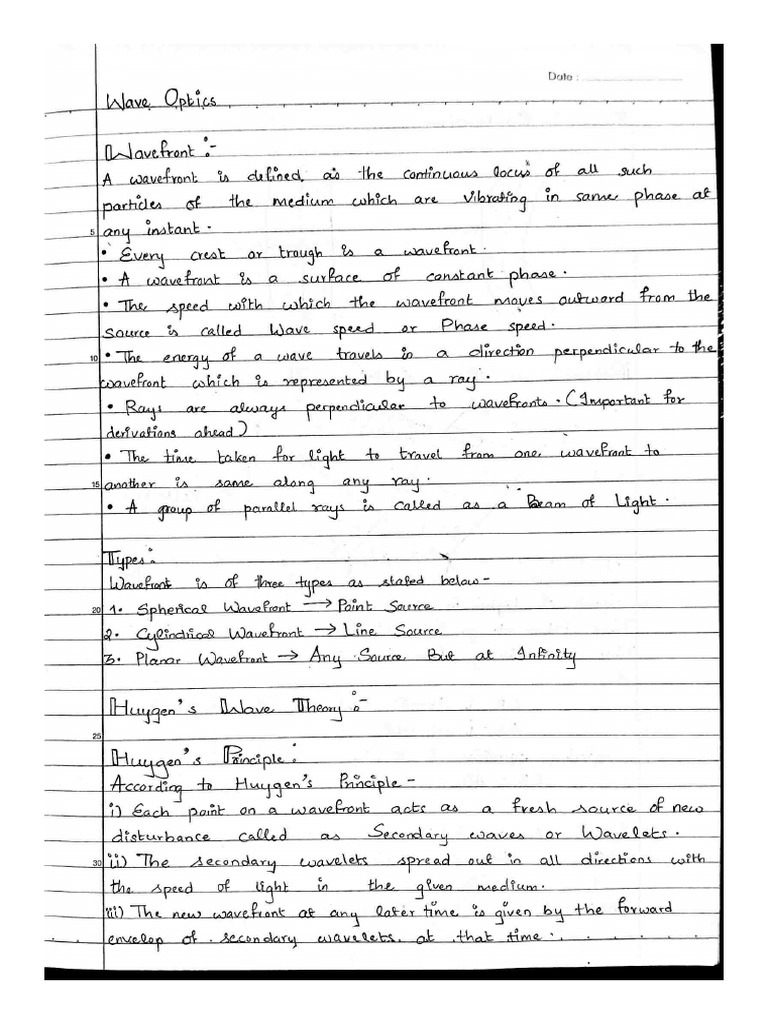 Date :
Wave Optics
Wavefront :-
A wavefront is defined as the continuous locus of all such
particles of the medium which are vibrating in same phase at
5 any instant.
• Every crest or trough is a wavefront.
• A wavefront is a surface of constant phase.
• The speed with which the wavefront moves outward from the
source is called Wave speed or Phase speed.
10 • The energy of a wave travels in a direction perpendicular to the
wavefront which is represented by a ray.
• Rays are always perpendicular to wavefronts. (Important for
derivations ahead)
• The time taken for light to travel from one wavefront to
15 another is same along any ray.
• A group of parallel rays is called as a Beam of Light.
Types:
Wavefront is of three types as stated below-
20 1. Spherical Wavefront → Point Source
2. Cylindrical Wavefront → Line Source
3. Planar Wavefront → Any Source But at Infinity
Huygen's Wave Theory :-
25
Huygen's Principle :
According to Huygen's Principle -
i) Each point on a wavefront acts as a fresh source of new
disturbance called as Secondary waves or Wavelets.
30 ii) The secondary wavelets spread out in all directions with
the speed of light in the given medium.
iii) The new wavefront at any later time is given by the forward
envelop of secondary wavelets at that time.